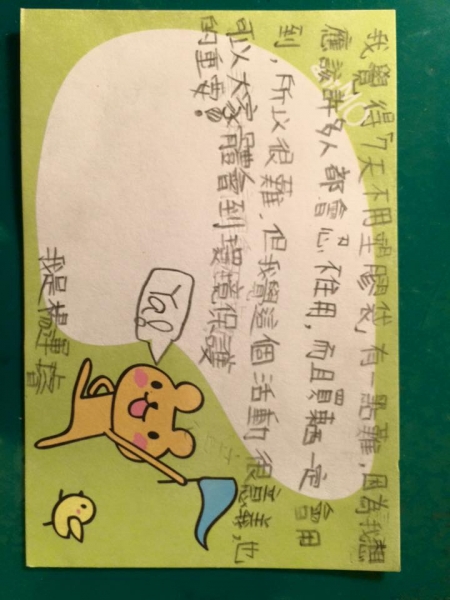 我覺得7天不用塑膠袋有一點難，因為我想
應該許多人都會忍不住用，而且買東西一定會用
到，所以很難，但我覺這個活動很意義，也
可以大家體會到環境保護
的重要！
Ya!
我是楊